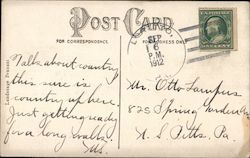 POST CARD
FOR CORRESPONDENCE
FOR ADDRESS ONLY
SEP
6
P.M.
1912
Talk about country
this sure is
country up here.
Just getting ready
for a long walk.
Mr. Otto Lampus
825 Spring Garden
N. S. Pitts, Pa.